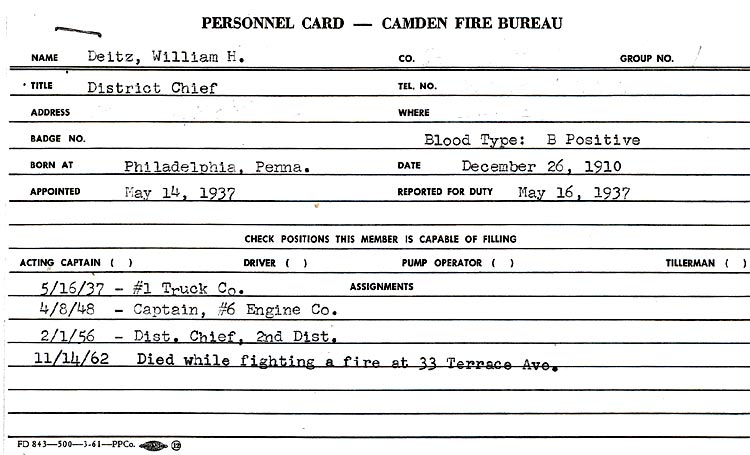 PERSONNEL CARD — CAMDEN FIRE BUREAU
NAME Deitz, William H. CO. GROUP NO.
TITLE District Chief TEL. NO.
ADDRESS WHERE
BADGE NO. Blood Type: B Positive
BORN AT Philadelphia, Penna. DATE December 26, 1910
APPOINTED May 14, 1937 REPORTED FOR DUTY May 16, 1937
CHECK POSITIONS THIS MEMBER IS CAPABLE OF FILLING
ACTING CAPTAIN ( ) DRIVER ( ) PUMP OPERATOR ( ) TILLERMAN ( )
5/16/37 - #1 Truck Co. ASSIGNMENTS
4/8/48 - Captain, #6 Engine Co.
2/1/56 - Dist. Chief, 2nd Dist.
11/14/62 Died while fighting a fire at 33 Terrace Ave.
FD 843—500—3-61—PPCo.